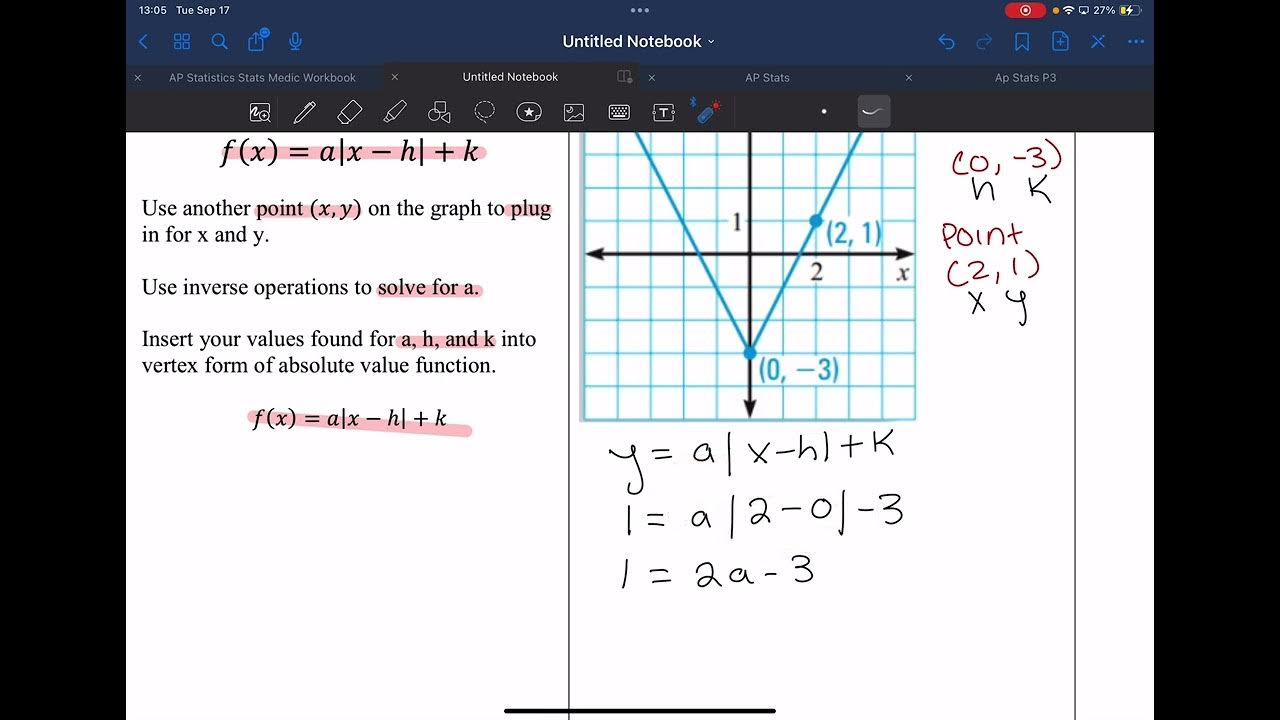 13:05 Tue Sep 17
27%
Untitled Notebook
AP Statistics Stats Medic Workbook
Untitled Notebook
AP Stats
Ap Stats P3
f(x) = a|x − h| + k
Use another point (x, y) on the graph to plug
in for x and y.
Use inverse operations to solve for a.
Insert your values found for a, h, and k into
vertex form of absolute value function.
f(x) = a|x − h| + k
1
(2, 1)
2
x
(0, −3)
y = a|x-h|+k
1 = a|2-0|-3
1 = 2a-3
(0, -3)
h k
Point
(2, 1)
x y